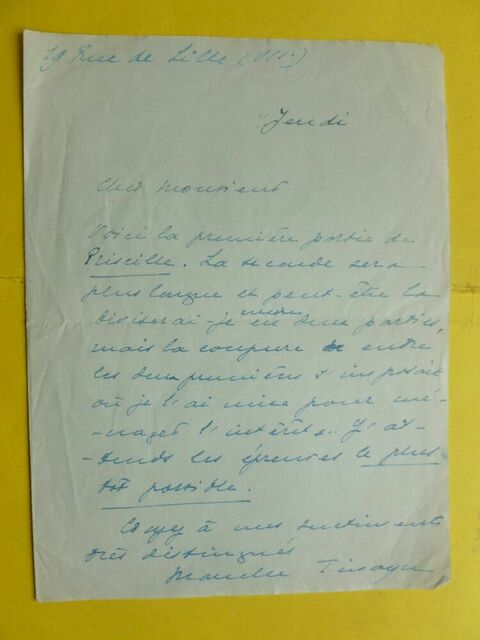 29 Rue de Lille (VIIe)
Jeudi
Cher Monsieur
Voici la première partie de
Priscille. La seconde sera
plus longue et peut-être la
diviserai-je en deux parties,
mais la coupure entre
les deux premières s'imposait
où je l'ai mise pour mé-
-nager l'intérêt. J'at-
-tends les épreuves le plus
tôt possible.
Croyez à mes sentiments
très distingués
Marcelle Tinayre